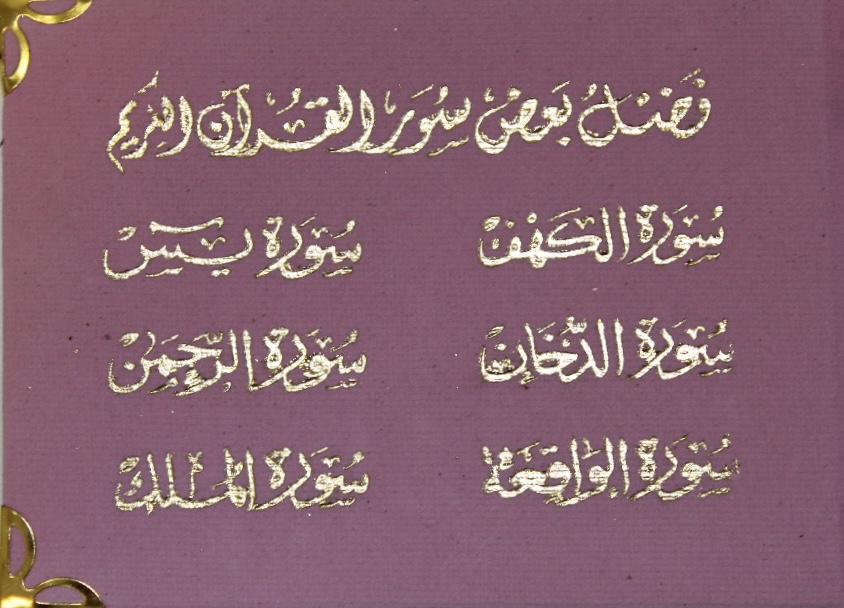 فَضْلُ بَعْضِ سُوَرِ الْقُرْآنِ الكَرِيمِ
سُورَة الكَهْف سُورَة يس
سُورَة الدُّخَان سُورَة الرَّحْمَن
سُورَة الوَاقِعَة سُورَة المُلْك